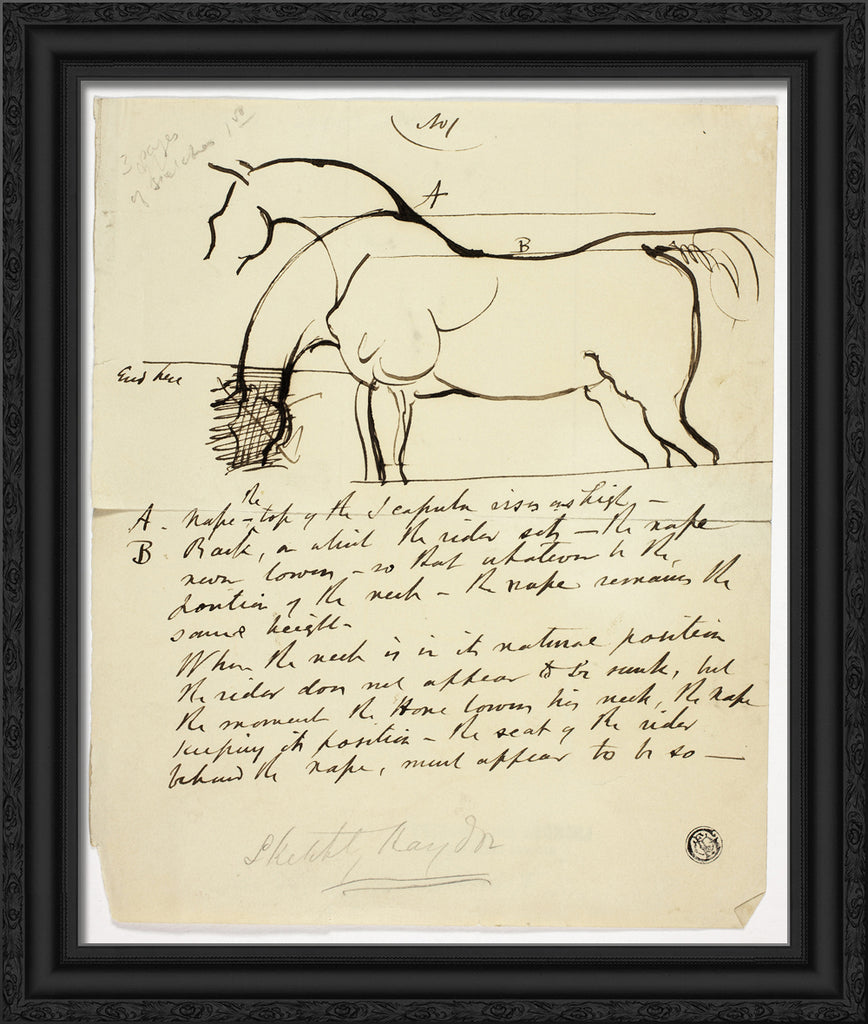 No 1
3 pages
of sketches 1
A
B
End here
A. nape - the top of the Scapula rises as high -
B Back, on which the rider sits - the nape
never lowers - so that whatever be the
position of the neck - the nape remains the
same height -
When the neck is in its natural position
the rider does not appear to be sunk, but
the moment the Horse lowers his neck, the nape
keeping its position - the seat of the rider
behind the nape, must appear to be so -
Sketch by Haydon